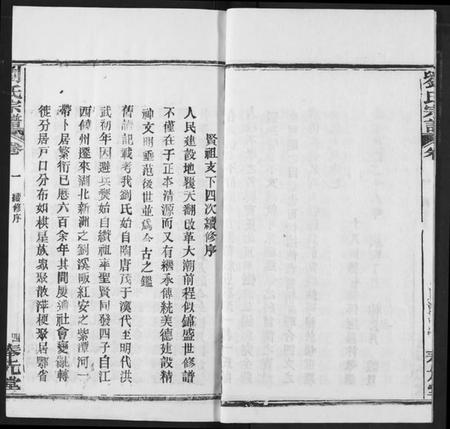 賢祖支下四次續修序
人民建設地覆天翻改革大潮前程似錦盛世修譜
不僅在于正本清源而又有襯承傳統美德建設精
神文明垂范後世並爲今古之鑑
舊譜記載考我劉氏始自隋唐茂于漢代至明代洪
武初年因避兵燹始自饒祖率聖賢同發四子自江
西饒州遷來湖北新洲之劉溪畈紅安之紫潭河一
帶卜居繁衍已歷六百余年其間屢遇社會變亂轉
徙分居戶口分布如棋星族
聚散萍梗聚居鄂省
劉氏宗譜
卷一
續修序
四
奉先堂
劉氏宗譜
卷